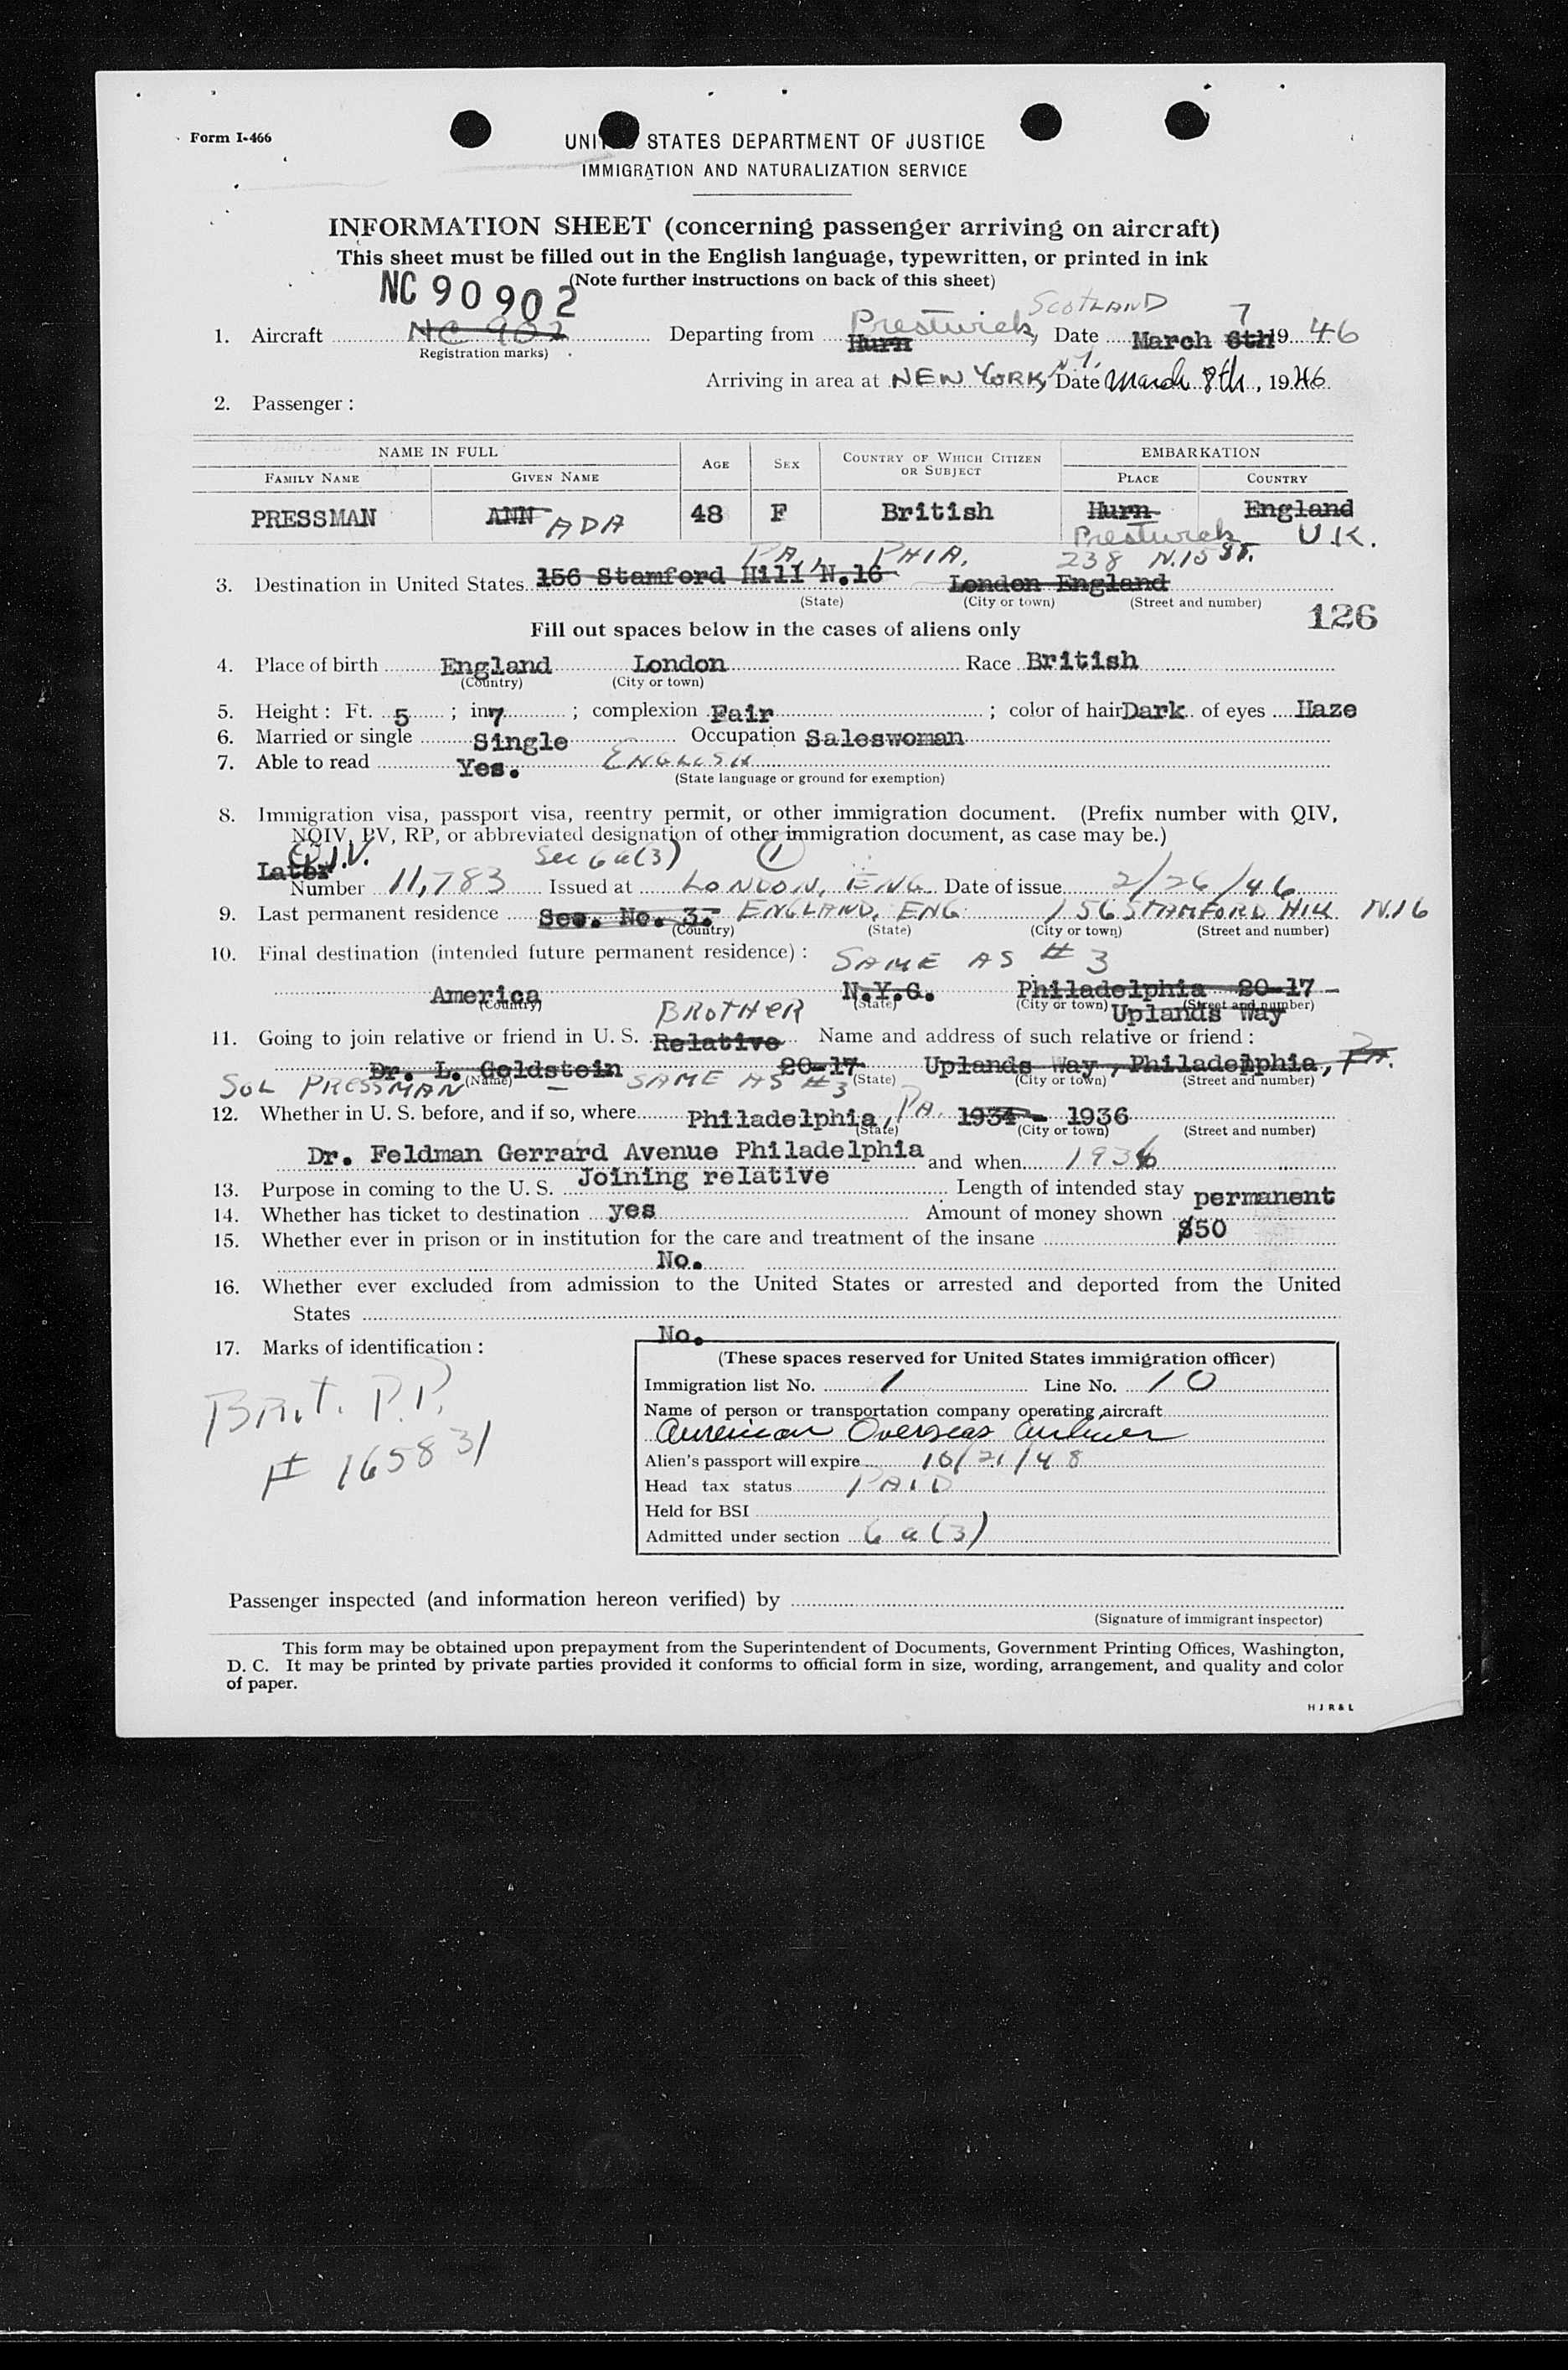 Form I-466
UNITED STATES DEPARTMENT OF JUSTICE
IMMIGRATION AND NATURALIZATION SERVICE
INFORMATION SHEET (concerning passenger arriving on aircraft)
This sheet must be filled out in the English language, typewritten, or printed in ink
(Note further instructions on back of this sheet)
NC 90902
SCOTLAND
1. Aircraft NC 902 Departing from Prestwick, Hurn Date March 6th 7 1946
(Registration marks)
Arriving in area at NEW YORK, N.Y. Date March 8th, 1946
2. Passenger :
NAME IN FULL AGE SEX COUNTRY OF WHICH CITIZEN OR SUBJECT EMBARKATION
FAMILY NAME GIVEN NAME PLACE COUNTRY
PRESSMAN ANN ADA 48 F British Hurn England
Prestwick U.K.
PA., PHIA. 238 N.15 ST.
3. Destination in United States 156 Stamford Hill N.16 London England
(State) (City or town) (Street and number)
126
Fill out spaces below in the cases of aliens only
4. Place of birth England London Race British
(Country) (City or town)
5. Height : Ft. 5 ; in 7 ; complexion Fair ; color of hair Dark of eyes Haze
6. Married or single Single Occupation Saleswoman
7. Able to read Yes. ENGLISH
(State language or ground for exemption)
8. Immigration visa, passport visa, reentry permit, or other immigration document. (Prefix number with QIV,
NQIV, PV, RP, or abbreviated designation of other immigration document, as case may be.)
Q.I.V. Sec 6a(3) 1
Later
Number 11,783 Issued at LONDON, ENG. Date of issue 2/26/46
9. Last permanent residence See. No. 3. ENGLAND, ENG 156 STAMFORD HILL N.16
(Country) (State) (City or town) (Street and number)
10. Final destination (intended future permanent residence) : SAME AS # 3
America N.Y.C. Philadelphia 20-17 -
(Country) (State) (City or town) (Street and number)
Uplands Way
BROTHER
11. Going to join relative or friend in U. S. Relative Name and address of such relative or friend :
Dr. L. Goldstein 20-17 Uplands Way, Philadelphia, PA.
(Name) (State) (City or town) (Street and number)
SOL PRESSMAN - SAME AS #3
12. Whether in U. S. before, and if so, where Philadelphia, PA. 1934 - 1936
(State) (City or town) (Street and number)
Dr. Feldman Gerrard Avenue Philadelphia and when 1936
13. Purpose in coming to the U. S. Joining relative Length of intended stay permanent
14. Whether has ticket to destination yes Amount of money shown $50
15. Whether ever in prison or in institution for the care and treatment of the insane
No.
16. Whether ever excluded from admission to the United States or arrested and deported from the United
States
No.
17. Marks of identification :
Brit. P.P.
# 165831
(These spaces reserved for United States immigration officer)
Immigration list No. 1 Line No. 10
Name of person or transportation company operating aircraft
American Overseas Airlines
Alien's passport will expire 10/21/48
Head tax status PAID
Held for BSI
Admitted under section 6 a (3)
Passenger inspected (and information hereon verified) by
(Signature of immigrant inspector)
This form may be obtained upon prepayment from the Superintendent of Documents, Government Printing Offices, Washington,
D. C. It may be printed by private parties provided it conforms to official form in size, wording, arrangement, and quality and color
of paper.
H J R & L